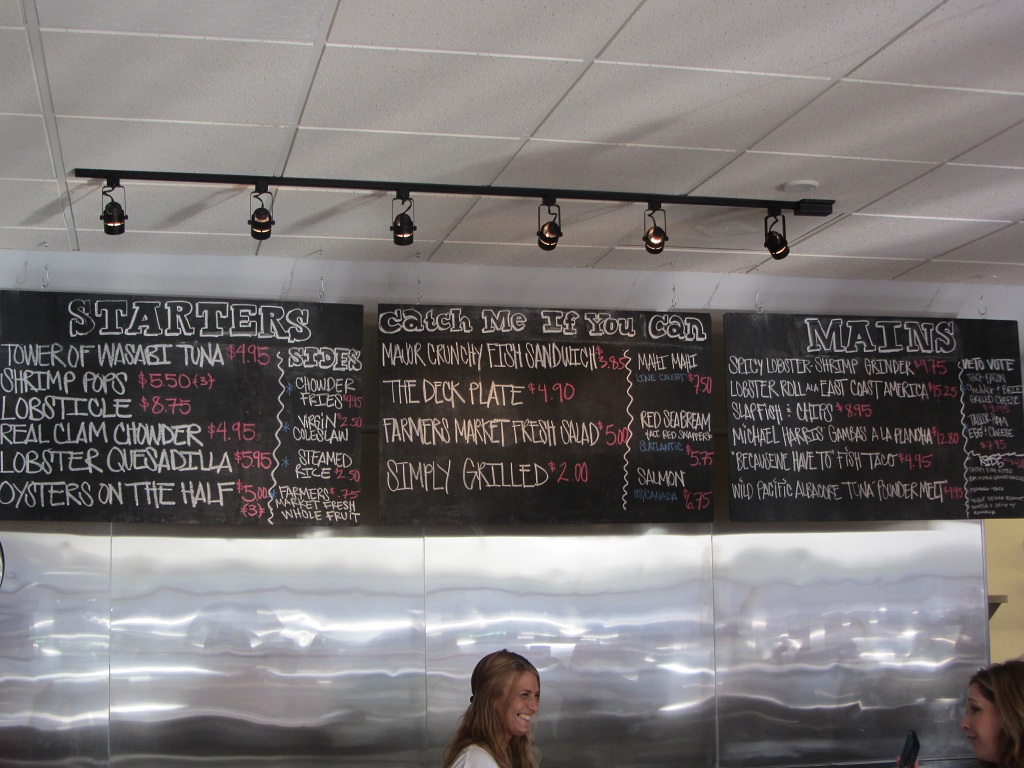 STARTERS
TOWER OF WASABI TUNA $4.95
SHRIMP POPS $5.50 (3)
LOBSTICLE $8.75
REAL CLAM CHOWDER $4.95
LOBSTER QUESADILLA $5.95
OYSTERS ON THE HALF $5.00
(3)
SIDES
* CHOWDER
FRIES $4.95
* VIRGIN 2.50
COLESLAW
* STEAMED
RICE 2.50
* FARMERS $.75
MARKET FRESH
WHOLE FRUIT
Catch Me If You Can
MAJOR CRUNCHY FISH SANDWICH $5.85
THE DECK PLATE $4.90
FARMERS MARKET FRESH SALAD $5.00
SIMPLY GRILLED $2.00
MAHI MAHI
LINE CAUGHT $7.50
RED SEABREAM
(AKA RED SNAPPER)
S. ATLANTIC $5.75
SALMON
US/CANADA $6.75
MAINS
SPICY LOBSTER-SHRIMP GRINDER $9.75
LOBSTER ROLL ALA EAST COAST AMERICA $15.25
SLAPFISH & CHIPS $8.95
MICHAEL HARRIS' GAMBAS A LA PLANCHA $12.80
"BECAUSE WE HAVE TO" FISH TACO $4.95
WILD PACIFIC ALBACORE "TUNA" POUNDER MELT $9.95
VETO VOTE
GRILLED CHEESE